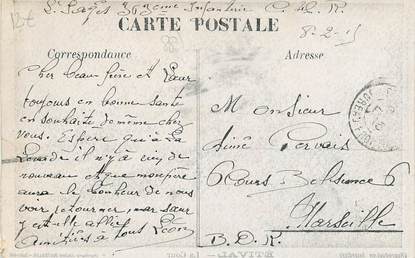 363ème Infanterie C. H. R.
8-2-15
CARTE POSTALE
Correspondance
Adresse
Cher beau frère et Sœur
toujours en bonne santé
en souhaite de même chez
vous. Espère qu'à la
il n'y a rien de
nouveau et que mon père
aura le bonheur de nous
voir retourner, ma sœur
y est-elle allée
amitiés à tous Léon
Monsieur
Aimé Gervais
6 Cours Belsunce 6
Marseille
B. D. R.